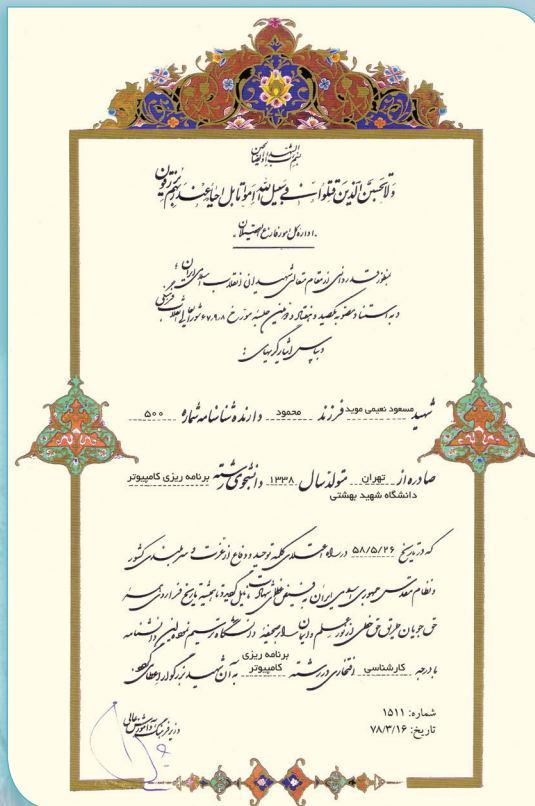 بسم رب الشهداء والصالحین
ولا تحسبن الذین قتلوا فی سبیل الله امواتا بل احیاء عند ربهم یرزقون
اداره کل امور فارغ التحصیلان
بمنظور قدردانی از مقام متعالی شهیدان انقلاب اسلامی ایران
و به استناد مصوبه یکصد و هفتاد و دومین جلسه مورخ ۶۷/۹/۸ شورای عالی انقلاب فرهنگی
و بپاس ایثارگریهای:
شهید مسعود نعیمی موید فرزند محمود دارنده شناسنامه شماره ۵۰۰
صادره از تهران متولد سال ۱۳۳۸ دانشجوی رشته برنامه ریزی کامپیوتر
دانشگاه شهید بهشتی
که در تاریخ ۵۸/۵/۲۶ در راه اعتلای کلمه توحید و دفاع از عزت و سربلندی کشور
و نظام مقدس جمهوری اسلامی ایران به فیض عظمای شهادت نایل گردید و تا همیشه تاریخ فرا راه همه
حق جویان طریق حق خطی از نور علم و ایمان بر صحیفه دانشگاه ترسیم نمود این دانشنامه
با درجه کارشناسی افتخاری در رشته برنامه ریزی کامپیوتر به آن شهید بزرگوار اعطا می گردد.
شماره: ۱۵۱۱
تاریخ: ۷۸/۳/۱۶
وزیر فرهنگ و آموزش عالی